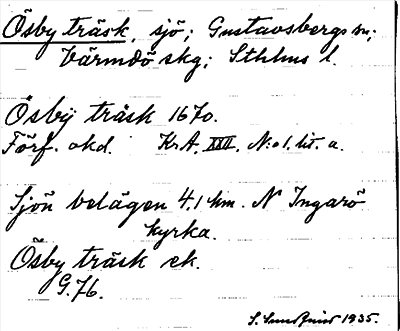 Ösby träsk, sjö; Gustavsbergs sn;
Värmdö skg; Sthlms l.
Ösby träsk 1670.
Förf. okd. KrA. XXII. N:o 1. lit. a.
Sjön belägen 4.1 km. N Ingarö
kyrka.
Ösby träsk ek.
G.76.
S. 1935.